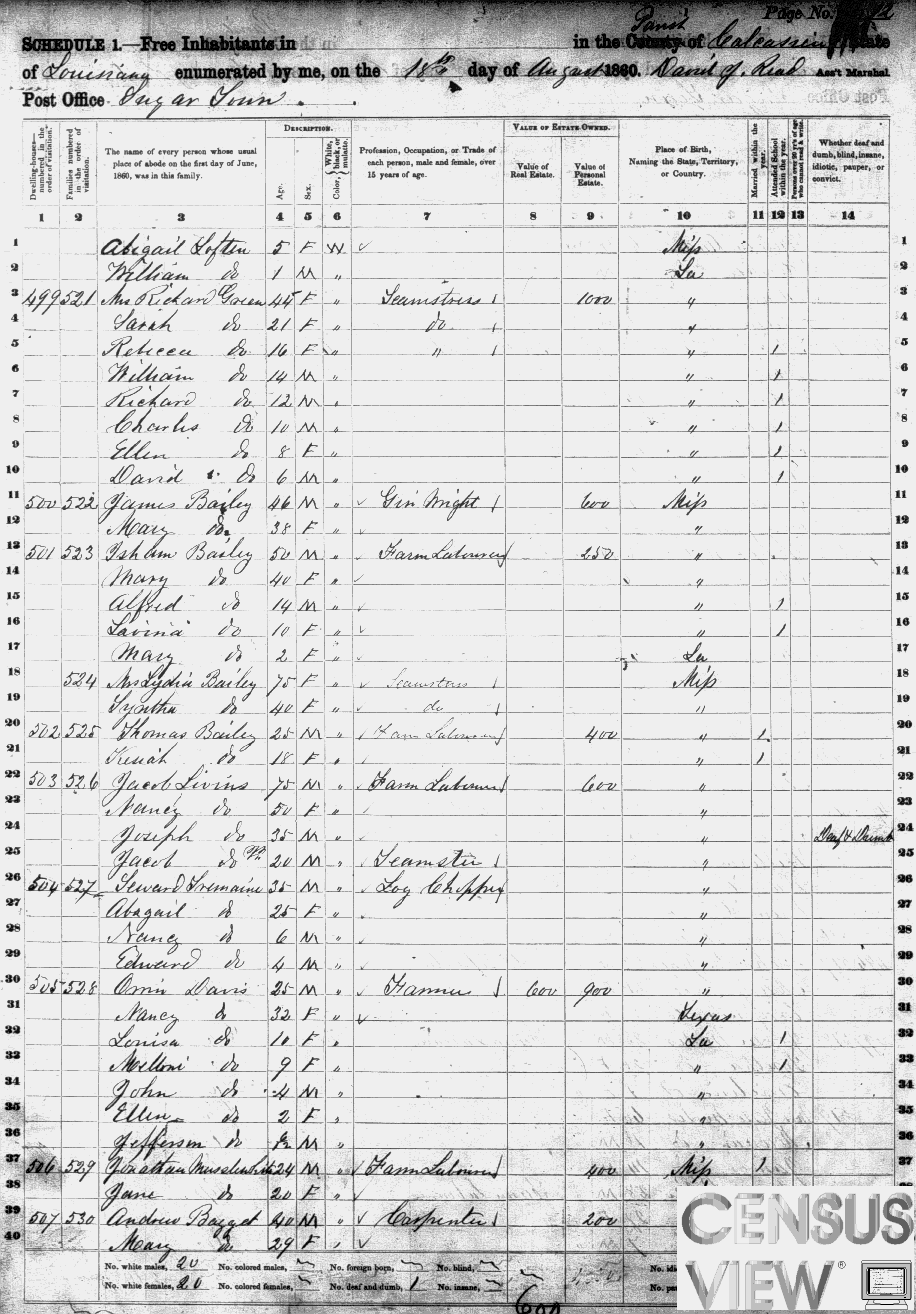 Page No.
SCHEDULE 1.—Free Inhabitants in in the County Parish of Calcassieu State
of Louisiana enumerated by me, on the 18th day of August 1860. David J. Read Ass't Marshal
Post Office Sugar Town.
Dwelling-houses—numbered in the order of visitation.
Families numbered in the order of visitation.
The name of every person whose usual place of abode on the first day of June, 1860, was in this family.
DESCRIPTION.
Age.
Sex.
Color, White, black, or mulatto.
Profession, Occupation, or Trade of each person, male and female, over 15 years of age.
VALUE OF ESTATE OWNED.
Value of Real Estate.
Value of Personal Estate.
Place of Birth, Naming the State, Territory, or Country.
Married within the year.
Attended School within the year.
Persons over 20 y'rs of age who cannot read & write.
Whether deaf and dumb, blind, insane, idiotic, pauper, or convict.
1 2 3 4 5 6 7 8 9 10 11 12 13 14
1 Abigail Loften 5 F W ✓ Miss 1
2 William do 1 M " La 2
3 499 521 Mrs Richard Green 45 F " Seamstress 1000 " 3
4 Sarah do 21 F " do " 4
5 Rebecca do 16 F " " " 1 5
6 William do 14 M " " 1 6
7 Richard do 12 M " " 1 7
8 Charles do 10 M " " 1 8
9 Ellen do 8 F " " 1 9
10 David do 6 M " " 1 10
11 500 522 James Bailey 46 M " ✓ Gin Wright 600 Miss 11
12 Mary do 38 F " ✓ " 12
13 501 523 Isham Bailey 50 M " ✓ Farm Labourer 250 " 13
14 Mary do 40 F " ✓ " 14
15 Alfred do 14 M " ✓ " 1 15
16 Lavinia do 10 F " ✓ " 1 16
17 Mary do 2 F " La 17
18 524 Mrs Lydia Bailey 75 F " ✓ Seamstress Miss 18
19 Syntha do 40 F " ✓ do " 19
20 502 525 Thomas Bailey 25 M " ✓ Farm Labourer 400 " 1 20
21 Kesiah do 18 F " ✓ " 1 21
22 503 526 Jacob Livins 75 M " ✓ Farm Labourer 600 " 22
23 Nancy do 50 F " ✓ " 23
24 Joseph do 35 M " ✓ " Deaf & Dumb 24
25 Jacob do 20 M " ✓ Teamster " 25
26 504 527 Seward Tremaine 35 M " ✓ Log Chopper " 26
27 Abagail do 25 F " " 27
28 Nancy do 6 M " ✓ " 28
29 Edward do 4 M " ✓ " 29
30 505 528 Orrin Davis 25 M " ✓ Farmer 600 900 " 30
31 Nancy do 32 F " ✓ Texas 31
32 Louisa do 10 F " La 1 32
33 do 9 F " " 1 33
34 John do 4 M " " 34
35 Ellen do 2 F " " 35
36 Jefferson do M " " 36
37 506 529 Jonathan Musslewhite 24 M " ✓ Farm Labourer 400 Miss 1 37
38 Jane do 20 F " ✓ 38
39 507 530 Andrew Bagget 40 M " ✓ Carpenter 200
40 Mary do 29 F " ✓
No. white males, 20 No. colored males, No. foreign born, No. blind, No. idi
No. white females, 20 No. colored females, No. deaf and dumb, 1 No. insane, No. pa
600
CENSUS
VIEW®